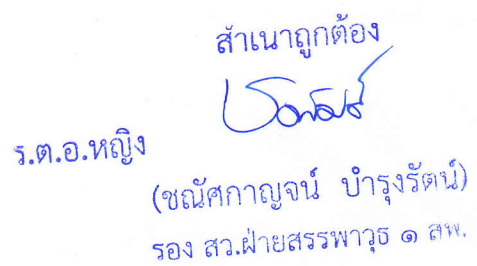 สำเนาถูกต้อง
ร.ต.อ.หญิง
(ชณัศกาญจน์ บำรุงรัตน์)
รอง สว.ฝ่ายสรรพาวุธ ๑ สพ.